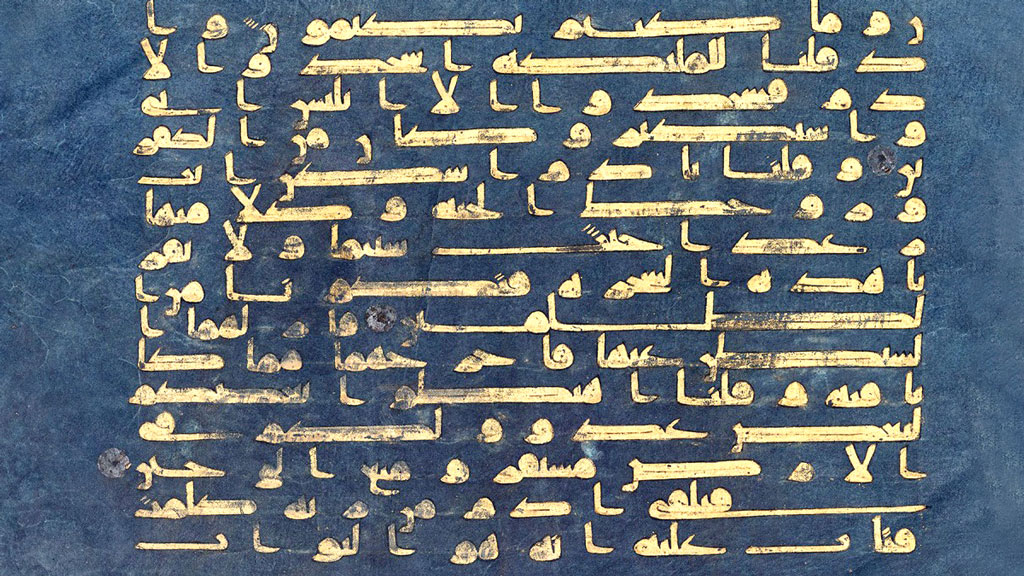 ن و ما كنتم تكتمون و ا
ذ قلنا للمليكه اسجدوا لا
دم فسجدوا الا ابليس ابى
و استكبر و كان من الكفر
ين و قلنا يادم اسكن انت
و زوجك الجنه و كلا منها
رغدا حيث شيتما و لا تقر
با هذه الشجره فتكونا من ا
لظلمين فازلهما ا
لشيطن عنها فاخرجهما مما كا
نا فيه و قلنا اهبطوا بعضكم
لبعض عدو و لكم فى
الارض مستقر و متع الى حين
فتلقى ادم من ربه كلمت
فتاب عليه انه هو التواب